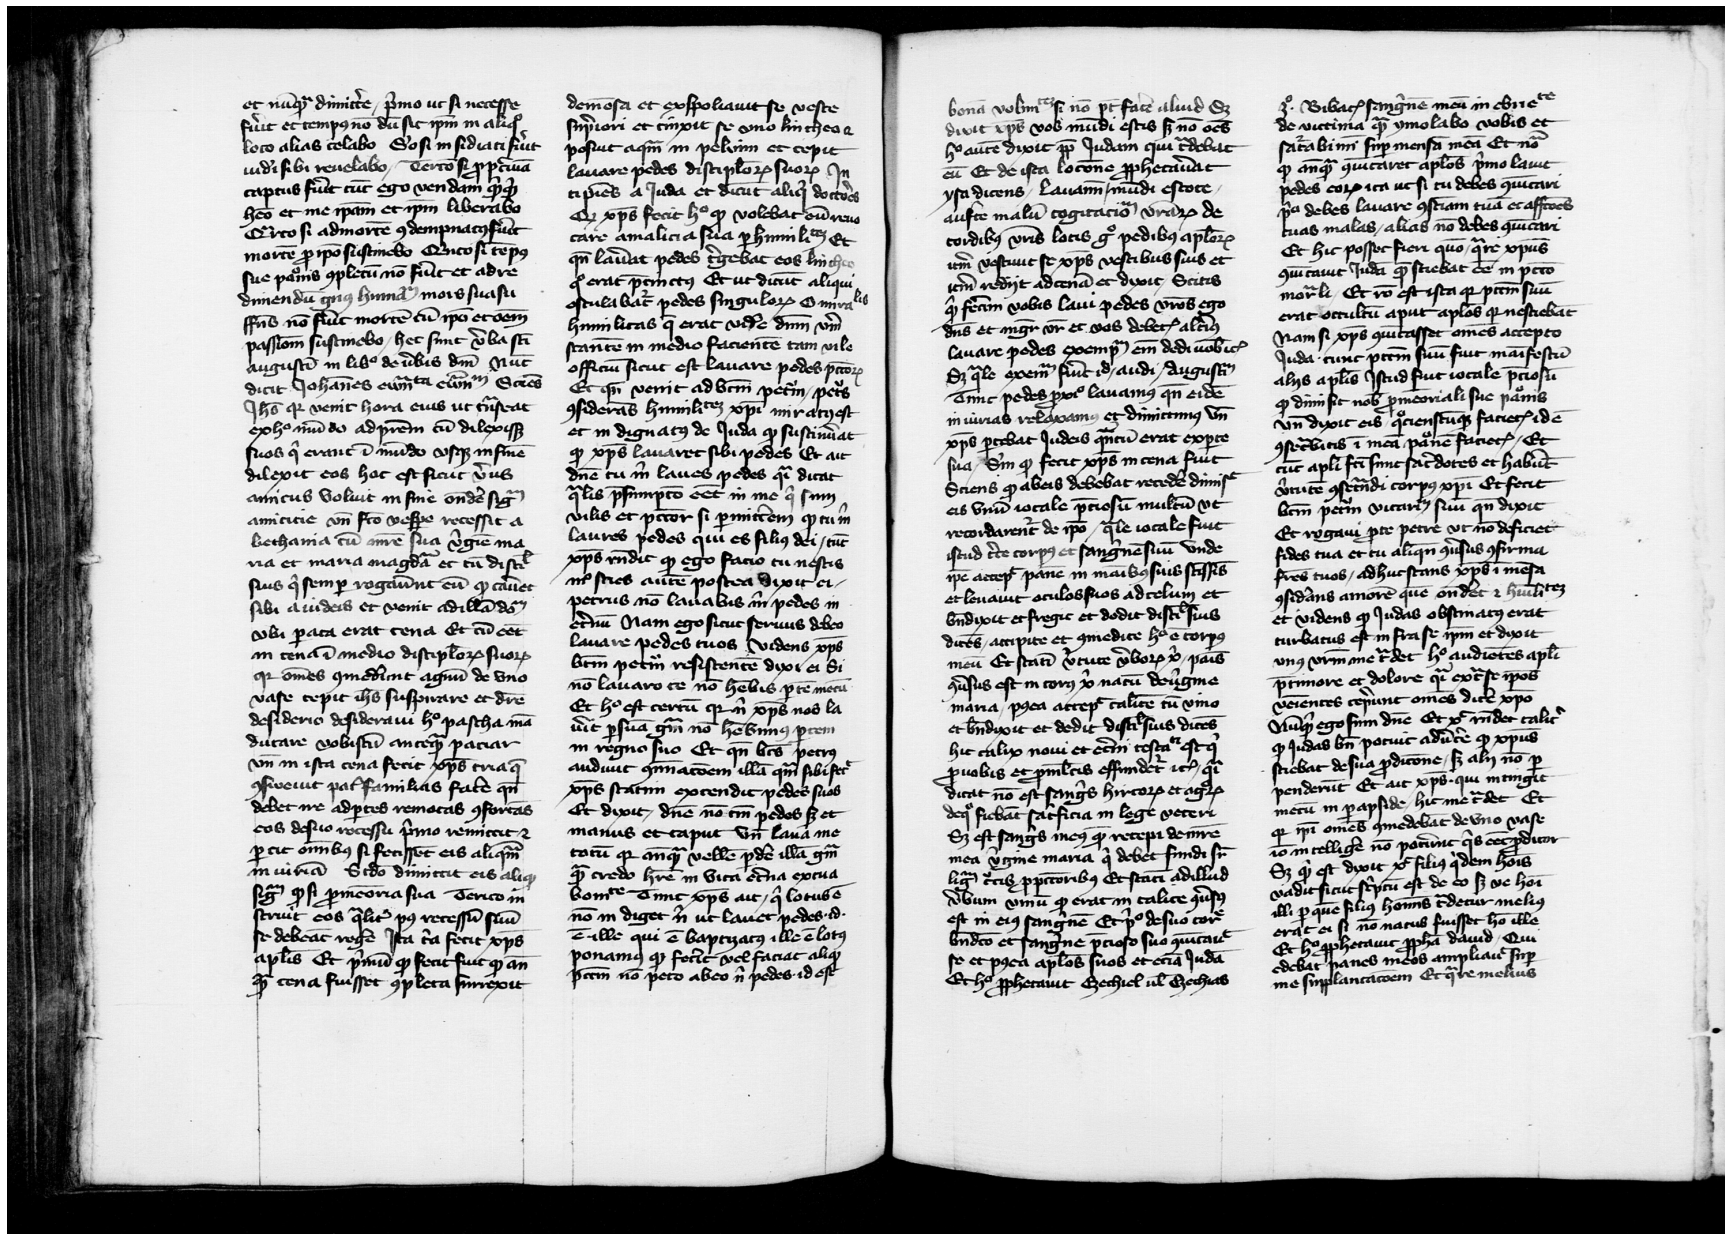 et nūq̄ dimitte᷑ / p̄mo ut si necesse
fu᷑it et tempꝯ nō dū sit ip̄m in aliq̊
loco alias celabo So si insidiati fu᷑it
iudī sibi reuelabo / Tercō si
captus fu᷑it tūc ego vendam
heō et me ipam et ip̄m liberabo
Qrto si ad mortē ꝯdempnatꝯ fu᷑it
mortē ꝓ ipō sustinebo Qnto si tēpꝯ
sue ꝯpletū nō fu᷑it et ad re
dimendū mors sua su
ffi᷑ns nō fu᷑it mortē cū ipō et oēm
passionē sustinebo / hec sunt v᷑ba sc̄i
augustī in libº de v᷑bis dnī Nūc
dicit Johānes Sciēs
Jhs qꝛ venit hora eius ut t᷑nseat
ex hº mūdo ad prēm cū dilexisset
suos q̇ erant ī mūdo vsqꝫ in finē
dilexit eos hoc est sicut v᷑us
amicus voluit in fine ondē᷑ sigᷓ
amicicie vn̄ fcō vespē recessit a
bethania cū mr̄e sua v᷑gīe ma
ria et maria magdᷓ et cū discl̄
suis q̇ semper rogauūt eū ꝙ cauet᷑
sibi a iudeis et venit ad illā domū
vbi parata erat cena Et cū eēt
in cena ī medio discipl̄oꝝ suoꝝ
qꝛ omēs ꝯmed᷑int agnū de vno
vase cepit ihs suspirare et dr̄e
desiderio desideraui hº pascha mā
ducare vobiscū anteq̄ patiar
vn̄ in ista cena fecit xp̄s tria q̄
ꝯsweuit pat᷑ familias facē᷑ qn̄
debet ire ad ꝑtes remotas ꝯfortās
eos de suo recessu p̄mo remittit ⁊
ꝑcit omībus si fecissēt eis aliq̄m
iniuriā Scd̄o dimittit eis aliqᷣ
sigᷓ qᷣ si ꝑ memoria sua Tercio in
struit eos q̄lit᷑ pꝯ recessū suū
se debeāt rege᷑ Ista tᷓa fecit xp̄s
apl̄is Et p̄mū qᷣ fecit fuit qᷣ an
q̄ cena fuisset ꝯpleta surrexit
de mēsa et exspoliauit se veste
sup̄iori et cinxit se vno lintheo ⁊
posuit aqᷓm in peluim et cepit
lauare pedes discipl̄oꝝ suoꝝ In
cipiēs a Juda et dicūt aliq̇ doctōes
Qꝛ xp̄s fecit hº qꝛ volebat eū reuo
care a malicia sua ꝑ humilitᵉᵐ Et
qn̄ lau᷑at pedes t᷑gebat eos lintheo
qº erat p̄cinctꝯ Et ut dicūt aliqui
osculabat᷑ pedes singuloꝝ O mirabilis
humilitas q̄ erat vidē᷑ dnm̄ vr̄m
stantē in medio facientē tam vile
officiū sicut est lauare pedes pctōꝝ
Et qn̄ venit ad btm̄ petrū / petrꝯ
ꝯsiderās humilitᵉᵐ xp̄i miratꝯ est
et indignatꝯ de Juda ꝙ sustinu᷑at
ꝙ xp̄s lauaret sibi pedes Et ait
dnē tu m̄ laues pedes qᷓi dicat
q̄lis p̄sumptō eēt in me q̇ sum
vilis et pctōr si ꝑmittē᷑m ꝙ tu m̄
laures pedes qui es filiꝯ dei / tūc
xp̄s rn̄dit ꝙ ego facio tu nescis
mº scies autē postea Dixit ei /
petrus nō lauabis m̄ pedes in
et᷑nū Nam ego sicut seruus debeo
lauare pedes tuos Videns xp̄s
btm̄ petrū resistentē dixit ei Si
nō lauaro te nō hēbis ꝑtē mecū
Et hº est certū qꝛ n̄ xp̄s nos la
u᷑it ꝑ suā grām nō hēbimꝯ ꝑtem
in regno suo Et qn̄ btūs petrus
audiuit illā q̄m sibi fec̄
xp̄s statim extendit pedes suos
Et dixit / dnē nō tm̄ pedes sꝫ et
manus et caput vn̄ laua me
totū qꝛ nūq̄ vellē pdē᷑ illā grām
q̄ credo hr̄e in vita et᷑na ex tua
bonitᵗᵉ Tunc xp̄s ait / q̇ lotus ē
nō indiget n̄ ut lauet pedes ·id·
ē ille qui ē baptizatꝯ ille ē lotꝯ
ponamꝯ ꝙ fec᷑it vel faciat aliqᷣ
pctm̄ nō peto ab eo n̄ pedes · id est
bonā volūtᵉᵐ si nō pt̄ facē᷑ aliud Sꝫ
dixit xp̄s vos mūdi estis sꝫ nō oēs
hº autē dixit ꝓpt᷑ Judam qui t᷑debat
eū Et de ista locōne ꝓphetau᷑at
ysa dicens / Lauamī / mūdi estote /
aufe᷑te malū cogitaciōꝝ vr̄aꝝ de
cordibꝯ vr̄is locis gº pedibꝯ apl̄oꝝ
itm̄ vestiuit se xp̄s vestibus suis et
itm̄ redijt ad cenā et dixit / Scitis
q̇ fec᷑im vobis laui pedes vr̄os ego
dn̄s et mgr̄ vr̄ et vos debetꝭ alt᷑iꝯ
lauare pedes exemplū em̄ dedi uobꝭ
Sꝫ q̄le exemplū fu᷑it id / audi / Augustī
Tunc pedes ꝓxiº lauamꝯ qn̄ eidē
iniurias relaxamꝯ et dimittimꝯ vn̄
xp̄s ꝑcebat Judeis q̄ntū erat ex ꝑte
sua / S᷑m qᷣ fecit xp̄s in cena fuit
Sciens ꝙ ab eis debebat recede᷑ dimisit
eis vnū iocale p̄ciosū multū vt
recordarent᷑ de ipō / q̄le iocale fuit
istud c᷑te corpꝯ et sangᷓnē suū vnde
ipē accepᵗ panē in manibꝯ suis scīssīs
et leuauit oculos suos ad celum et
bn̄dixit et fregit et dedit discl̄ suis
dicēs / accipite et ꝯmedite hº ē corpꝯ
meū Et statī v᷑tute v᷑boꝝ xᷓ / panis
ꝯu᷑sus est in corpꝯ xᷓ natū de v᷑gine
maria / pꝯea accepᵗ calicē cū vino
et bn̄dixit et dedit discl̄ suis dicēs
hic calix noui et et᷑ni testaᵗⁱ est q̇
ꝓ uobis et ꝓ mltīs effundet᷑ ic̄ / qᷓi
dicat nō est sangᷣs hircoꝝ et agꝝ
de qº fiebāt sac᷑ficia in lege veteri
Sꝫ est sangᷣs meꝯ qᷣ recepi de mr̄e
mea v᷑gine maria q̇ debet fundi sr̄
lignū c᷑cis ꝓ pctōribꝯ Et statī ad illud
v᷑bum vinū qᷣ erat in calice ꝯu᷑sū
est in eiꝯ sangᷓnē Et p̄º de suo corꝑe
bn̄dc̄o et sangᷓne p̄cioso suo ꝯicauit
se et pꝯea apl̄os suos et eciā Judā
Et hº ꝓphetauit Ezechiel ul̄ Ezechias
3º. Bibacꝭ sangᷓnē meū in ebrieᵗᵉ
de victima qᷓ ymolabo vobis et
sac᷑abimī sup mensa mea Et nō
ꝙ anq̄ ꝯicaret apl̄os p̄mo lauit
pedes eoꝝ ita ut si tu debes ꝯicari
pᷓ debes lauare ꝯsciam tuā et affc̄ōes
tuas malas / alias nō debes ꝯicari
Et hic posset fieri quō / q̄re xpus
ꝯicauit Judā qꝛ sciebat eē in pctō
mortᷓli / Et rō est ista qꝛ pctm̄ suū
erat occultū aput apl̄os qꝛ nesciebāt
Nam si xp̄s ꝯicasset omēs accepto
Juda · tunc pctm̄ suū fuit maifestū
alijs apl̄is Istud fuit iocale p̄ciosū
qᷣ dimisit nob̄ ꝓ meoriali sue passiōis
vn̄ dixit eis q̊cienscūqꝫ facietꝭ id ē
ꝯsec᷑bitis ī meā facietꝭ / Et
tūc apl̄i fc̄i sunt sac᷑dotes et habūt
v᷑tute ꝯsec᷑ndi corpꝯ xp̄i Et fecit
btm̄ petrū vicariū suū qn̄ dixit
Et rogaui ꝓ te petre vt nō deficiet
fides tua et tu aliqn̄ ꝯu᷑sus ꝯfirma
fr̄es tuos / adhuc stans xp̄s ī mēsa
ꝯsid᷑ans amorē quē ondēt ⁊ humilitᵉᵐ
et videns ꝙ Judas obstinatꝯ erat
turbatus est infra se ip̄m et dixit
vnꝯ vr̄m me t᷑det hº audiētes apl̄i
p̄ timore et dolore qᷓi ext᷑ se ipōs
veientes cepu᷑nt omēs dice᷑ xpo
Nuq̇ ego sum dn̄e Et xꝰ rn̄det talit᷑
ꝙ Judas bn̄ potuit adu᷑te᷑ ꝙ xpus
sciebat de sua ꝓdicōne / sꝫ alij nō ꝑ
penderūt Et ait xp̄s · qui intingit
mecū in ꝑapside / hic me t᷑det Et
qꝛ ipī omēs ꝯmedebāt de vno vase
iō intellige᷑ nō potu᷑nt q̇s eēt ꝓditor
Sꝫ q̇ est dixit xꝰ filiꝯ q̇dem hōis
vadit sicut sc᷑ptū est de eo sꝫ ve hoī
illi ꝑ quē filiꝯ hōmis t᷑detur melius
erat ei si nō natus fuisset hō ille
Et hº ꝓphetauit ꝓpha dauid / Qui
edebat panes meos ampliauᵗ sup
me supplantacōem Et q̄re melius